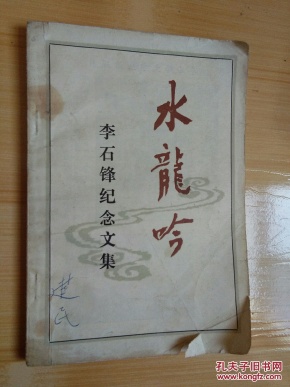 水龍吟
李石锋纪念文集
建民
孔夫子旧书网
www.kongfz.com